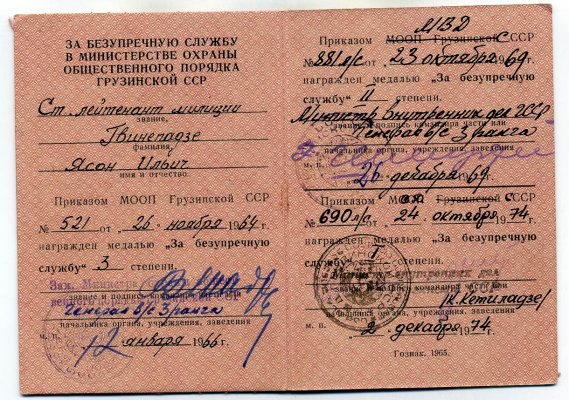 ЗА БЕЗУПРЕЧНУЮ СЛУЖБУ
В МИНИСТЕРСТВЕ ОХРАНЫ
ОБЩЕСТВЕННОГО ПОРЯДКА
ГРУЗИНСКОЙ ССР
Ст. лейтенант милиции
звание,
Гвинепадзе
фамилия,
Ясон Ильич
имя и отчество.
Приказом МООП Грузинской ССР
№ 521 от „26 ноября 1964 г.
награжден медалью „За безупречную
службу" 3 степени.
Зам. Министра
звание и подпись командира части или
генерал в/с 3 ранга
начальника органа, учреждения, заведения
м. п. 12 января 1966 г.
МВД
Приказом МООП Грузинской ССР
№ 881 л/с от „23 октября 1969 г.
награжден медалью „За безупречную
службу" II степени.
Министр Внутренних дел ГССР
звание и подпись командира части или
Генерал в/с 3 ранга
начальника органа, учреждения, заведения
м. п. 26 декабря 1969.
Приказом МООП Грузинской ССР
№ 690 л/с от „24 октября 1974 г.
награжден медалью „За безупречную
службу" I степени.
внутренних дел
звание и подпись командира части или
/К. Кетиладзе/
начальника органа, учреждения, заведения
м. п. 2 декабря 1974 г.
Гознак. 1965.